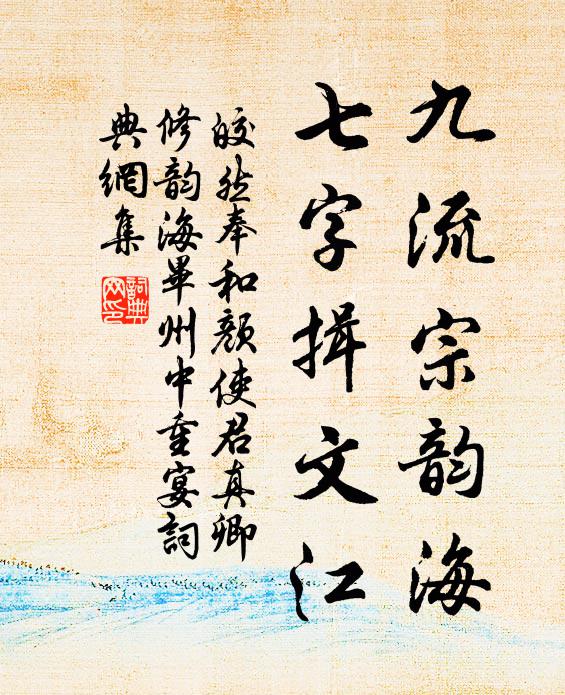 九流宗韵海
七字揖文江
皎然奉和颜使君真卿
修韵海畢州中重宴詞
典網集
詞典
网印